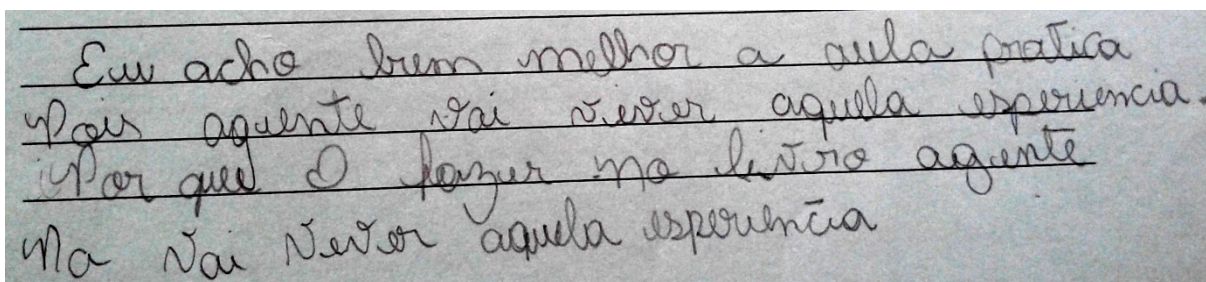 Eu acho bem melhor a aula pratica
Pois aguente vai viver aquela esperiencia.
Por que O fazer no livro agente
Na vai viver aquela esperiencia